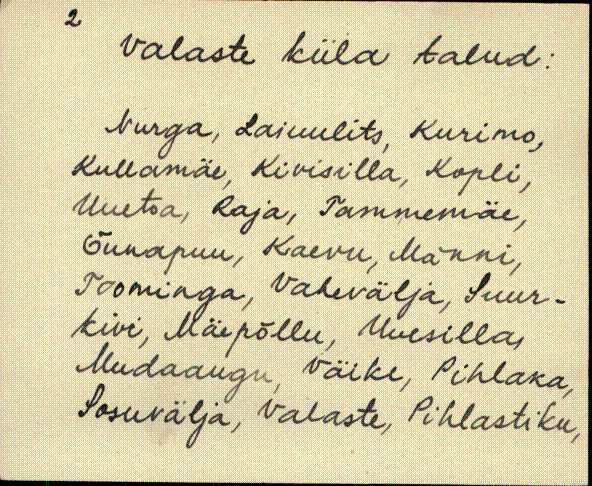 2
Valaste küla talud:
Nurga, Laiuulits, Kurimo,
Kullamäe, Kivisilla, Kopli,
Uuetoa, Raja, Tammemäe,
Õunapuu, Kaevu, Männi,
Toominga, Vahevälja, Suur-
kivi, Mäepõllu, Uuesilla,
Mudaaugu, Väike, Pihlaka,
Sosuvälja, Valaste, Pihlastiku,